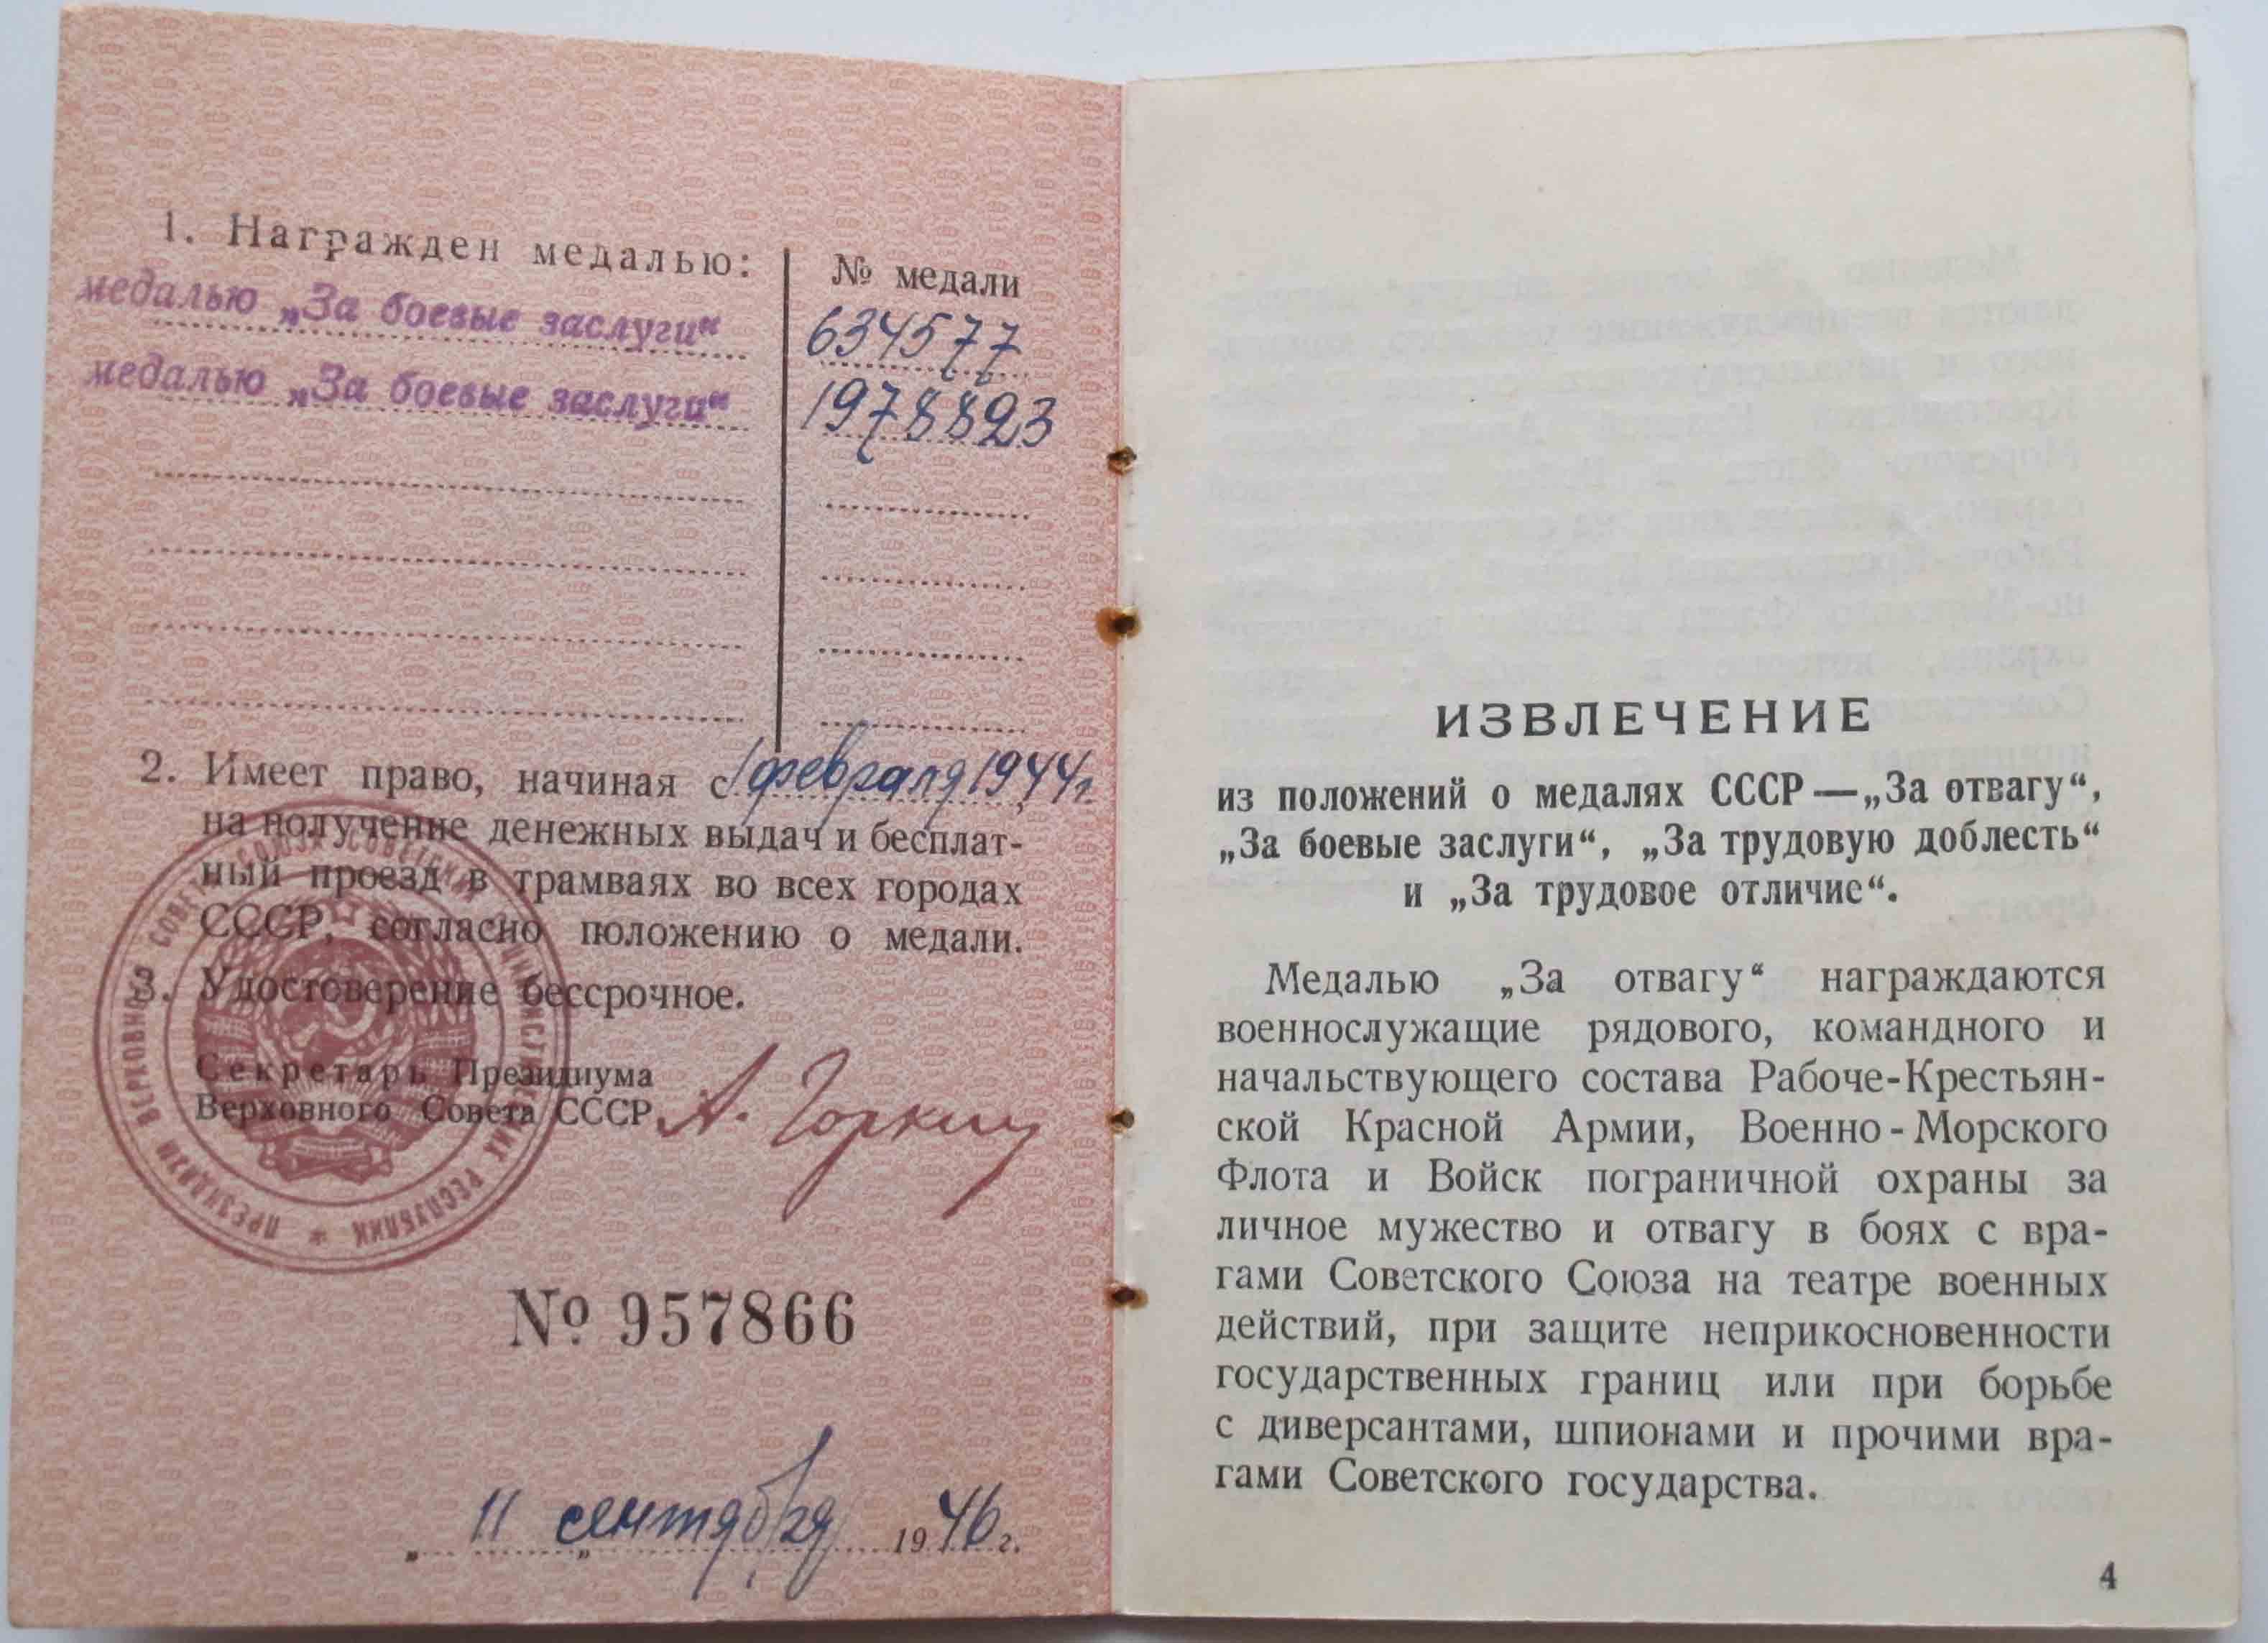 1. Награжден медалью:
№ медали
медалью „За боевые заслуги“
634577
медалью „За боевые заслуги“
1978823
2. Имеет право, начиная с 1 февраля 1944 г.
на получение денежных выдач и бесплат-
ный проезд в трамваях во всех городах
СССР, согласно положению о медали.
3. Удостоверение бессрочное.
Секретарь Президиума
Верховного Совета СССР
А. Горкин
ПРЕЗИДИУМ ВЕРХОВНОГО СОВЕТА СОЮЗА СОВЕТСКИХ СОЦИАЛИСТИЧЕСКИХ РЕСПУБЛИК
№ 957866
„11“ сентября 1946 г.
ИЗВЛЕЧЕНИЕ
из положений о медалях СССР—„За отвагу“,
„За боевые заслуги“, „За трудовую доблесть“
и „За трудовое отличие“.
Медалью „За отвагу“ награждаются
военнослужащие рядового, командного и
начальствующего состава Рабоче-Крестьян-
ской Красной Армии, Военно-Морского
Флота и Войск пограничной охраны за
личное мужество и отвагу в боях с вра-
гами Советского Союза на театре военных
действий, при защите неприкосновенности
государственных границ или при борьбе
с диверсантами, шпионами и прочими вра-
гами Советского государства.
4